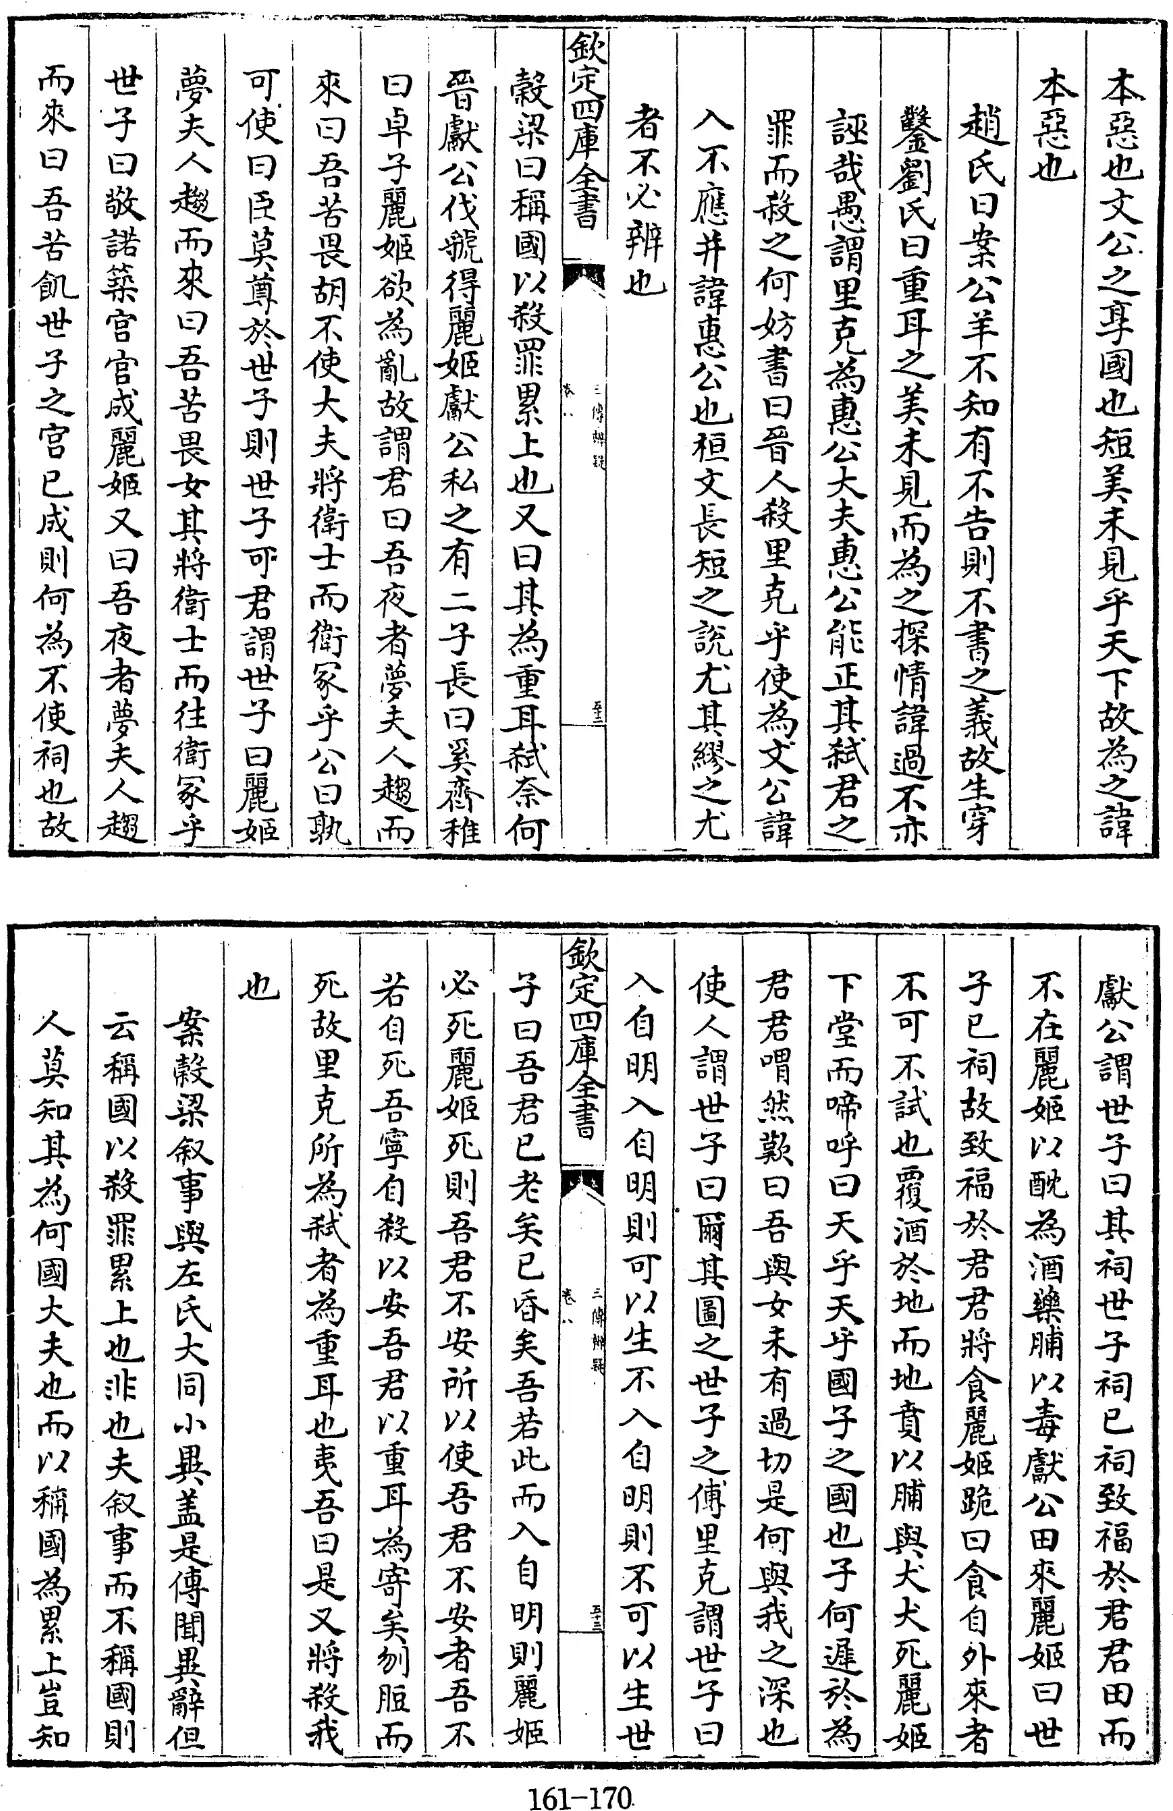 本惡也文公之享國也短美未見乎天下故為之諱
本惡也
趙氏曰案公羊不知有不告則不書之義故生穿
鑿劉氏曰重耳之美未見而為之探情諱過不亦
誣哉愚謂里克為惠公大夫惠公能正其弑君之
罪而殺之何妨書曰晉人殺里克乎使為文公諱
入不應并諱惠公也桓文長短之説尤其繆之尤
者不必辨也
欽定四庫全書
三傳辨疑
卷八
五十二
穀梁曰稱國以殺罪累上也又曰其為重耳弑奈何
晉獻公伐虢得麗姬獻公私之有二子長曰奚齊稚
曰卓子麗姬欲為亂故謂君曰吾夜者夢夫人趨而
來曰吾苦畏胡不使大夫將衛士而衛冢乎公曰孰
可使曰臣莫尊於世子則世子可君謂世子曰麗姬
夢夫人趨而來曰吾苦畏女其將衛士而往衛冢乎
世子曰敬諾築宮宮成麗姬又曰吾夜者夢夫人趨
而來曰吾苦飢世子之宮已成則何為不使祠也故
獻公謂世子曰其祠世子祠已祠致福於君君田而
不在麗姬以酖為酒藥脯以毒獻公田來麗姬曰世
子已祠故致福於君君將食麗姬跪曰食自外來者
不可不試也覆酒於地而地賁以脯與犬犬死麗姬
下堂而啼呼曰天乎天乎國子之國也子何遲於為
君君喟然歎曰吾與女未有過切是何與我之深也
使人謂世子曰爾其圖之世子之傅里克謂世子曰
入自明入自明則可以生不入自明則不可以生世
欽定四庫全書
三傳辨疑
卷八
五十三
子曰吾君已老矣已昏矣吾若此而入自明則麗姬
必死麗姬死則吾君不安所以使吾君不安者吾不
若自死吾寧自殺以安吾君以重耳為寄矣刎脰而
死故里克所為弑者為重耳也夷吾曰是又將殺我
也
案穀梁叙事與左氏大同小異盖是傳聞異辭但
云稱國以殺罪累上也非也夫叙事而不稱國則
人莫知其為何國大夫也而以稱國為累上豈知
161-170